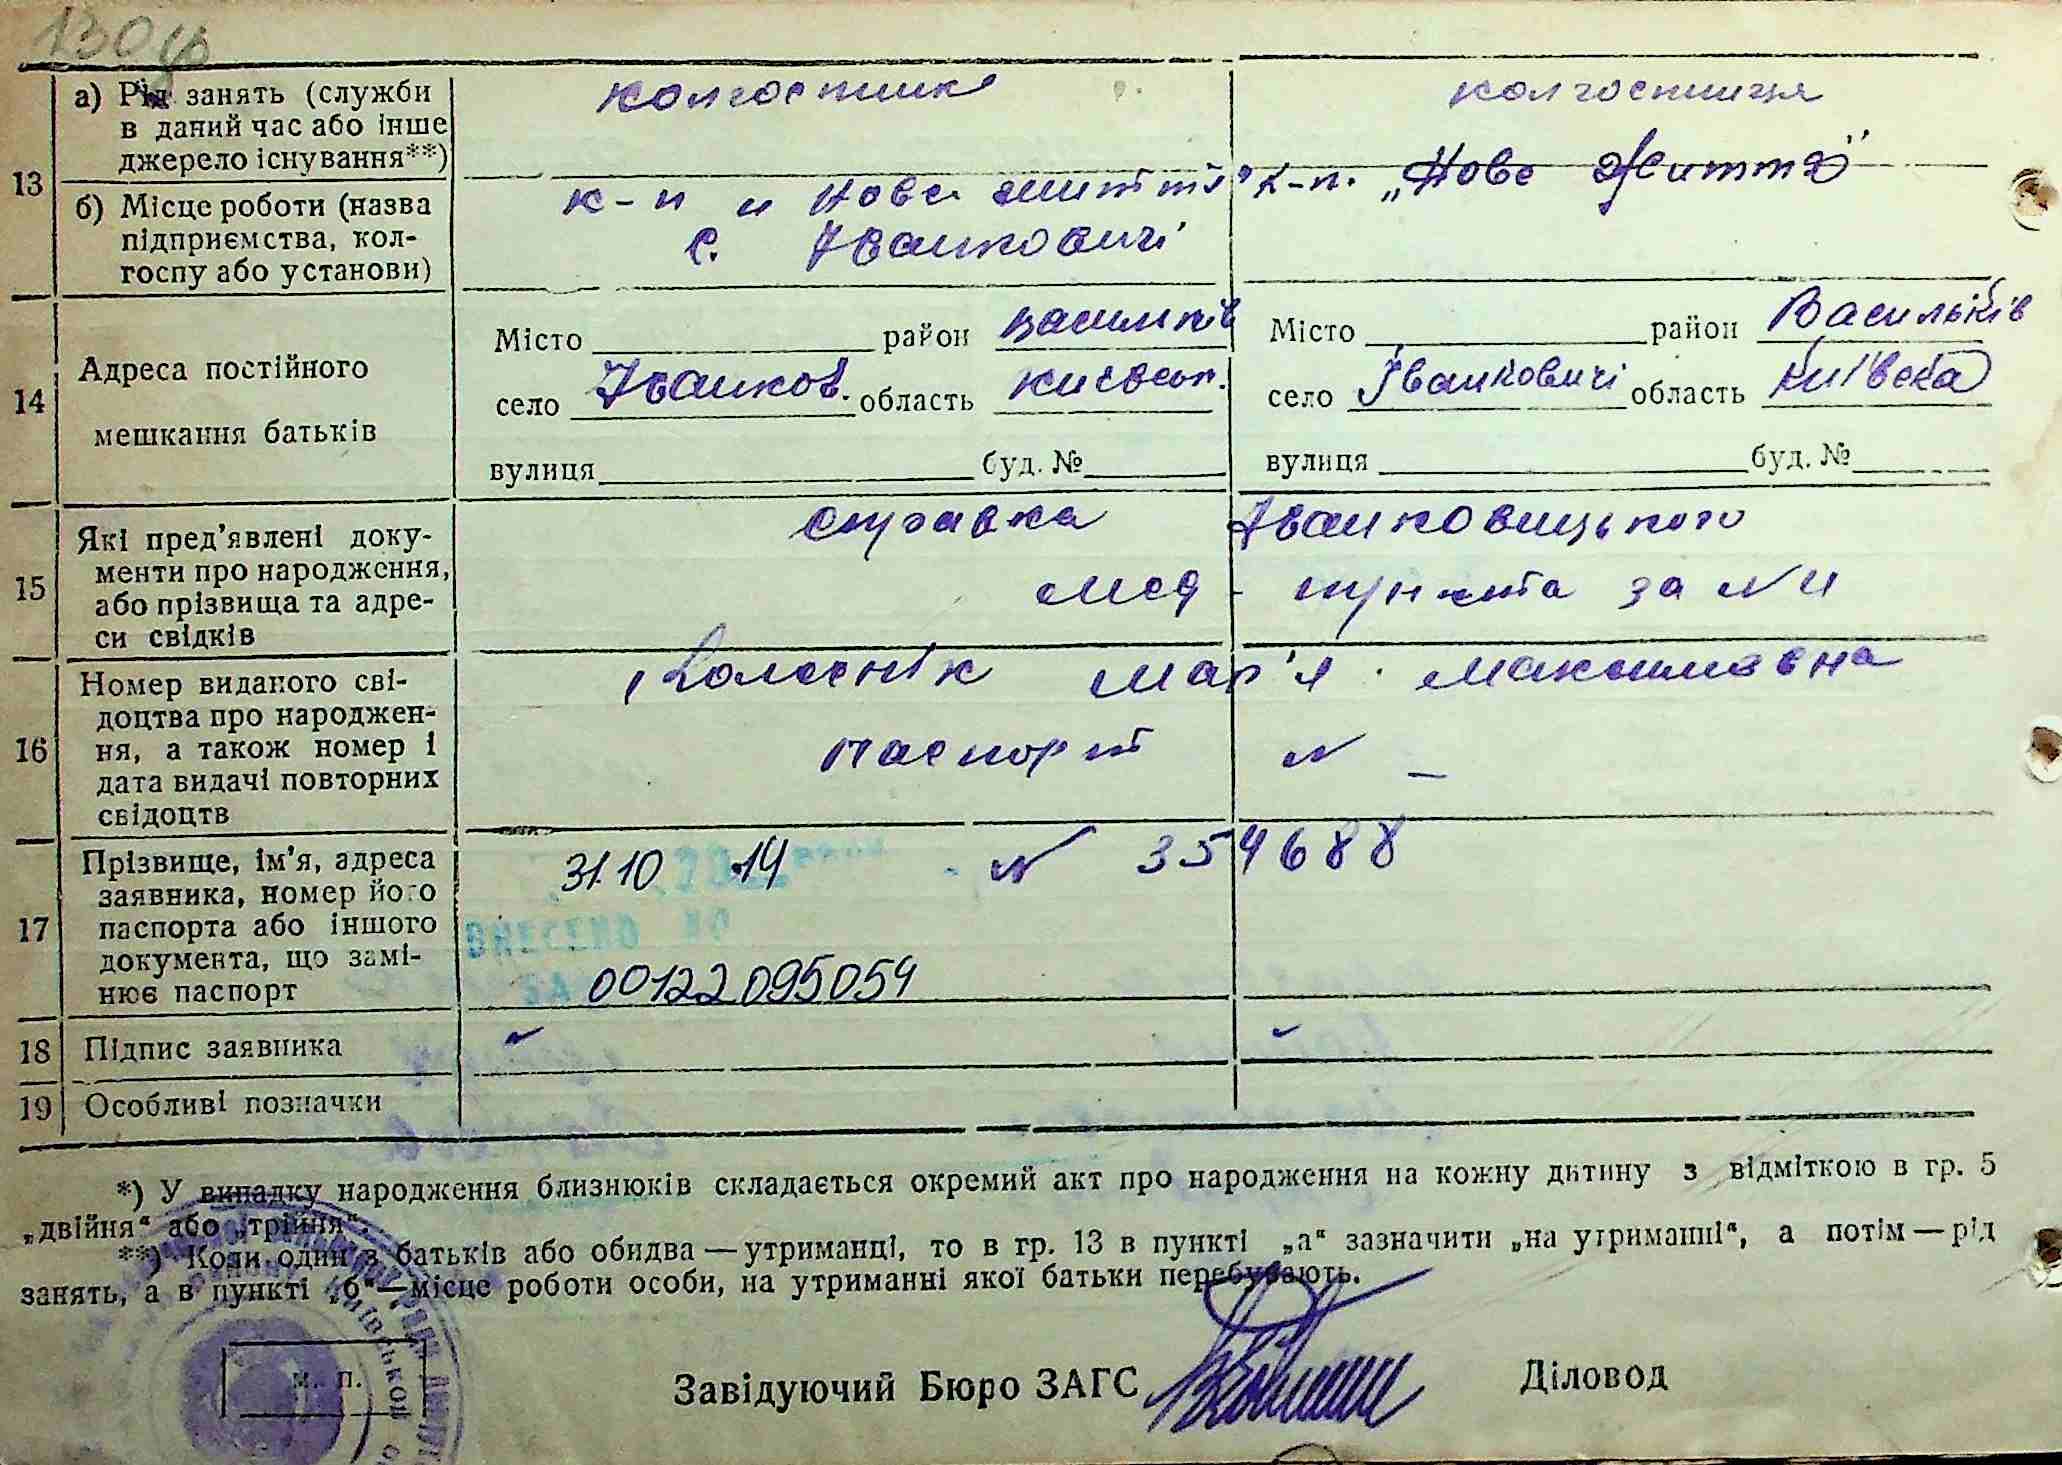 130
13
а) Рід занять (служби
в даний час або інше
джерело існування**)
колгоспник
колгоспниця
б) Місце роботи (назва
підприємства, кол-
госпу або установи)
к-п „Нове життя"
с. Іванковичі
к-п. „Нове Життя"
14
Адреса постійного
мешкання батьків
Місто район Васильків
село Іванков. область Київськ.
вулиця буд. №
Місто район Васильків
село Іванковичі область Київська
вулиця буд. №
15
Які пред'явлені доку-
менти про народження,
або прізвища та адре-
си свідків
справка Іванковицького
мед-пункта за №
16
Номер виданого сві-
доцтва про народжен-
ня, а також номер і
дата видачі повторних
свідоцтв
Колеснік Мар'я Максимівна
паспорт № –
17
Прізвище, ім'я, адреса
заявника, номер його
паспорта або іншого
документа, що замі-
нює паспорт
31.10 .14 № 354688
ВНЕСЕНО ДО
00122095054
18
Підпис заявника
19
Особливі позначки
*) У випадку народження близнюків складається окремий акт про народження на кожну дитину з відміткою в гр. 5
„двійня“ або „трійня“.
**) Коли один з батьків або обидва — утриманці, то в гр. 13 в пункті „а“ зазначити „на утриманні“, а потім — рід
занять, а в пункті „б“ — місце роботи особи, на утриманні якої батьки перебувають.
м. п.
Київської
Завідуючий Бюро ЗАГС
Діловод